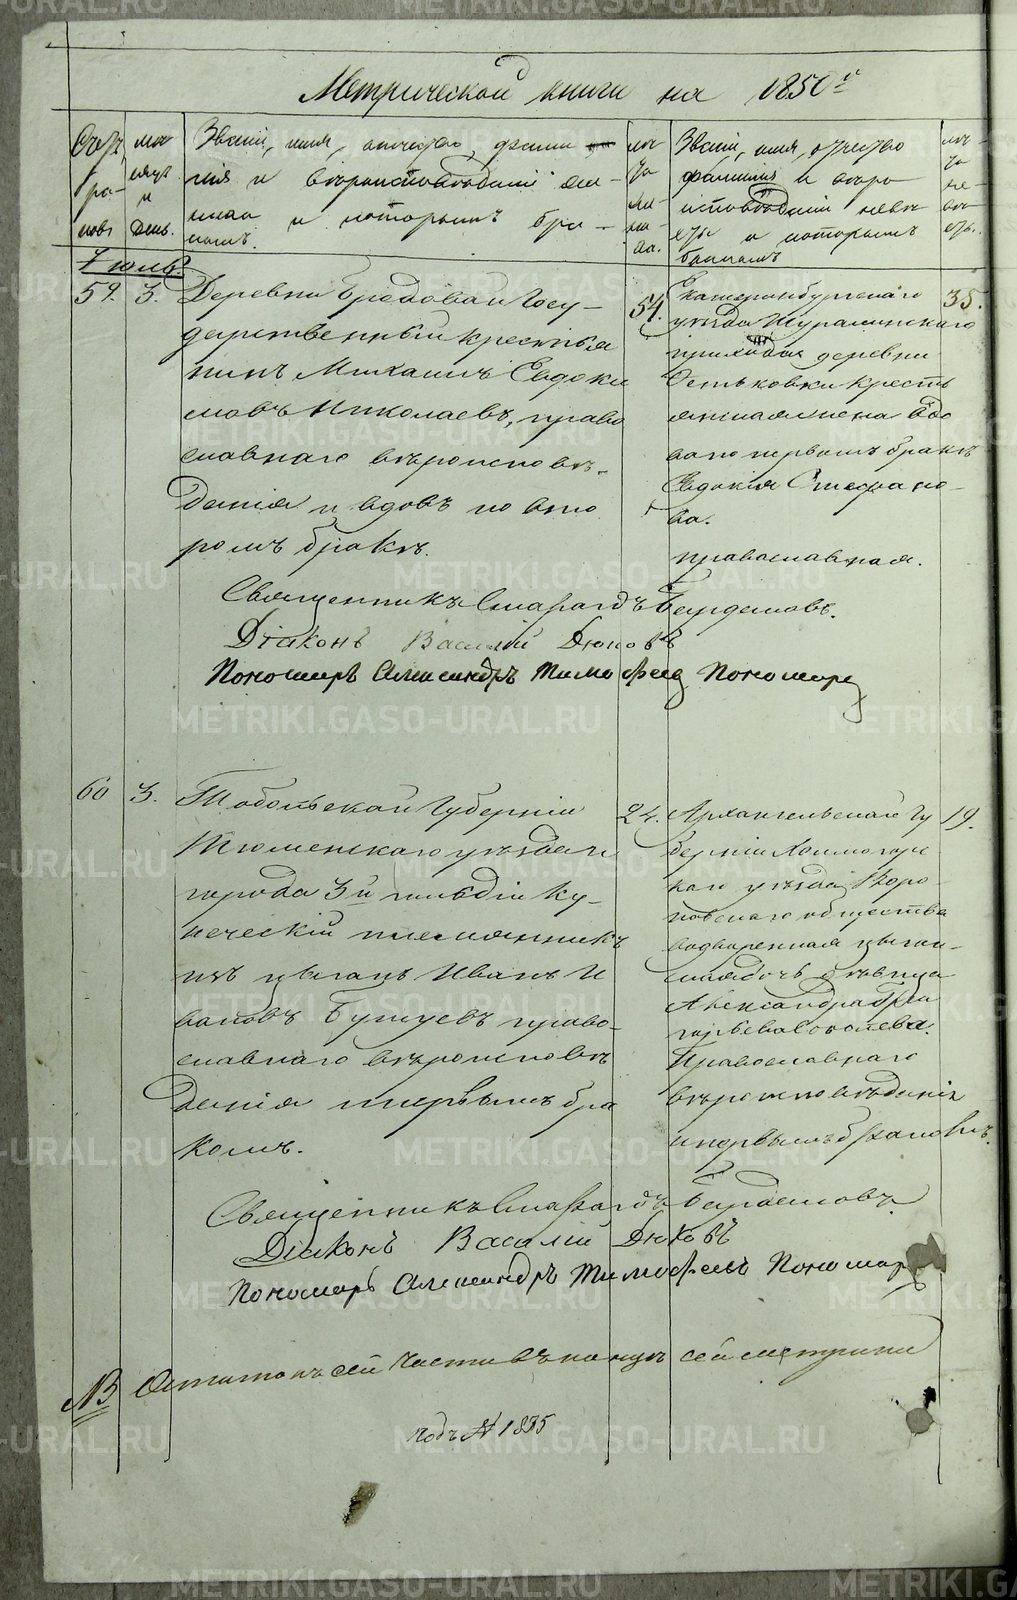 Метрической книги на 1850й
Счетъ бра- ковъ
мѣ- сяцъ и день.
Званіе, имя, отчество, фами-
лія и вѣроисповѣданіе же-
ниха и которымъ бра-
комъ.
лѣ- та же- ни- ха.
Званіе, имя, отчество
фамилія и вѣро
исповѣданіе невѣ
сты и которымъ
бракомъ
лѣ- та не- вѣ- сты.
Іюль
59. 3.
Деревни Бродовой Госу-
дарственный крестья
нинъ Михаилъ Евдоки
мовъ Николаевъ, право
славнаго вѣроисповѣ-
данія и вдовъ по вто
ромъ бракѣ.
54.
Екатеринбургскаго
уѣзда Шуралинскаго
прихода деревни
кресть
янская жена вдо
ва по первомъ бракѣ
Евдокія Стефано-
ва.
православная.
35.
Священникъ Смарагдъ Бирдемовъ.
Діаконъ Василій Дюковъ
Пономарь Александръ Тимофеев Пономарев
60 3.
Тобольской Губерніи
Тюменскаго уѣзда и
города 3й гильдіи ку-
печескій племянникъ
изъ цыганъ Иванъ И
вановъ право-
славнаго вѣроисповѣ
данія и первымъ бра
комъ.
24.
Архангельской Гу
берніи Холмогор
скаго уѣзда
общества
водворенная цыган-
ская дочь дѣвица
Александра Гри
горьева Соколева.
Православнаго
вѣроисповѣданія
и первымъ бракомъ.
19.
Священникъ Смарагдъ Бирдемовъ
Діаконъ Василій Дюковъ
Пономарь Александръ Тимофеевъ Пономарев
NB Остатокъ сей части въ концѣ сей метрики
подъ N 1835
METRIKI.GASO-URAL.RU